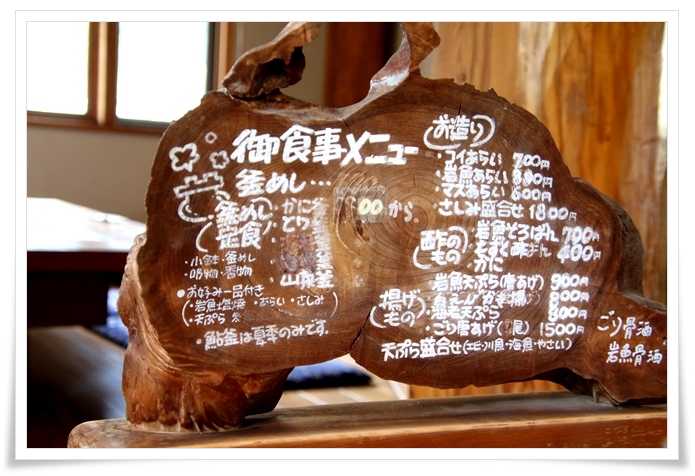 御食事メニュー
釜めし…
釜めし
定食
・かに釜
・とり
00から。
・小鉢・釜めし
・吸物・香物
・山菜釜
●お好み一品付き
・岩魚塩焼・あらい・さしみ
・天ぷら
・鮎釜は夏季のみです。
お造り
・コイあらい 700円
・岩魚あらい 800円
・マスあらい 600円
さしみ盛合せ 1800円
酢のもの
岩魚どろばん 700円
400円
かに
揚げもの
岩魚天ぷら(唐あげ) 900円
800円
海老天ぷら 800円
・ごり唐あげ 1500円
天ぷら盛合せ(エビ・川魚・海魚・やさい)
ごり骨酒
岩魚骨酒